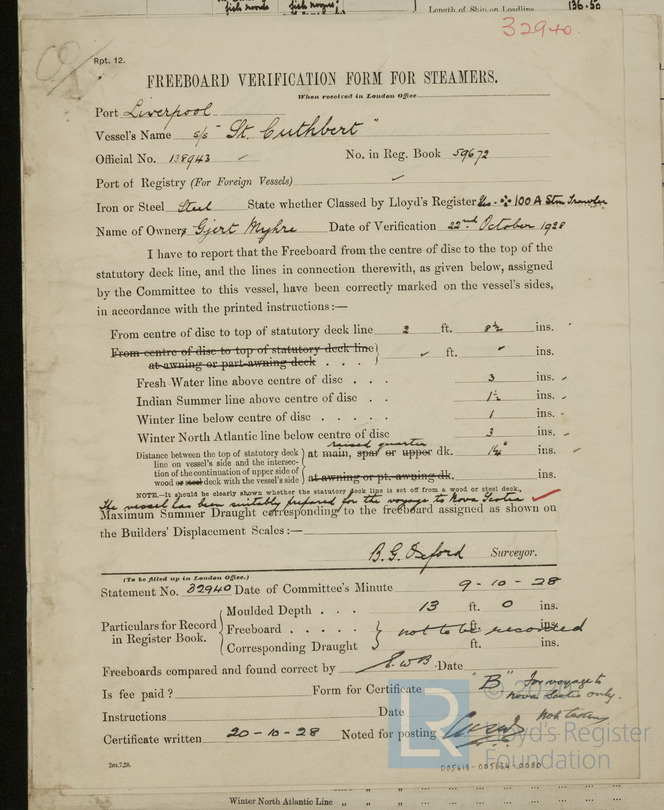 Length of Ship on Loadline 136.50
32940.
Rpt. 12.
FREEBOARD VERIFICATION FORM FOR STEAMERS.
When received in London Office
Port Liverpool
Vessel's Name s/s "St. Cuthbert"
Official No. 138943 No. in Reg. Book 59672
Port of Registry (For Foreign Vessels)
Iron or Steel Steel State whether Classed by Lloyd's Register Yes. 100 A Stm Trawler
Name of Owners Gjert Myhre Date of Verification 22nd October 1928
I have to report that the Freeboard from the centre of disc to the top of the
statutory deck line, and the lines in connection therewith, as given below, assigned
by the Committee to this vessel, have been correctly marked on the vessel's sides,
in accordance with the printed instructions:—
From centre of disc to top of statutory deck line 2 ft. 8½ ins.
From centre of disc to top of statutory deck line
at awning or part-awning deck . . . ft. ins.
Fresh Water line above centre of disc . . . 3 ins.
Indian Summer line above centre of disc . . 1½ ins.
Winter line below centre of disc . . . . . 1 ins.
Winter North Atlantic line below centre of disc 3 ins.
raised quarter
Distance between the top of statutory deck
line on vessel's side and the intersec-
tion of the continuation of upper side of
wood or steel deck with the vessel's side
at main, spar or upper dk. ins.
at awning or pt. awning dk. ins.
NOTE.—It should be clearly shown whether the statutory deck line is set off from a wood or steel deck.
The vessel has been suitably prepared for the voyage to Nova Scotia
Maximum Summer Draught corresponding to the freeboard assigned as shown on
the Builders' Displacement Scales:—
B.G. Oxford Surveyor.
(To be filled up in London Office.)
Statement No. 32940 Date of Committee's Minute 9-10-28
Particulars for Record
in Register Book.
Moulded Depth . . . 13 ft. 0 ins.
Freeboard . . . . . not to be recorded ft. ins.
Corresponding Draught ft. ins.
Freeboards compared and found correct by E.W.B Date
Is fee paid? Form for Certificate "B" For voyage to
Nova Scotia only.
Instructions Date
Certificate written 20-10-28 Noted for posting
2m,7,28.
005619-005634-0080
LR © Lloyd's Register
Foundation
Winter North Atlantic Line